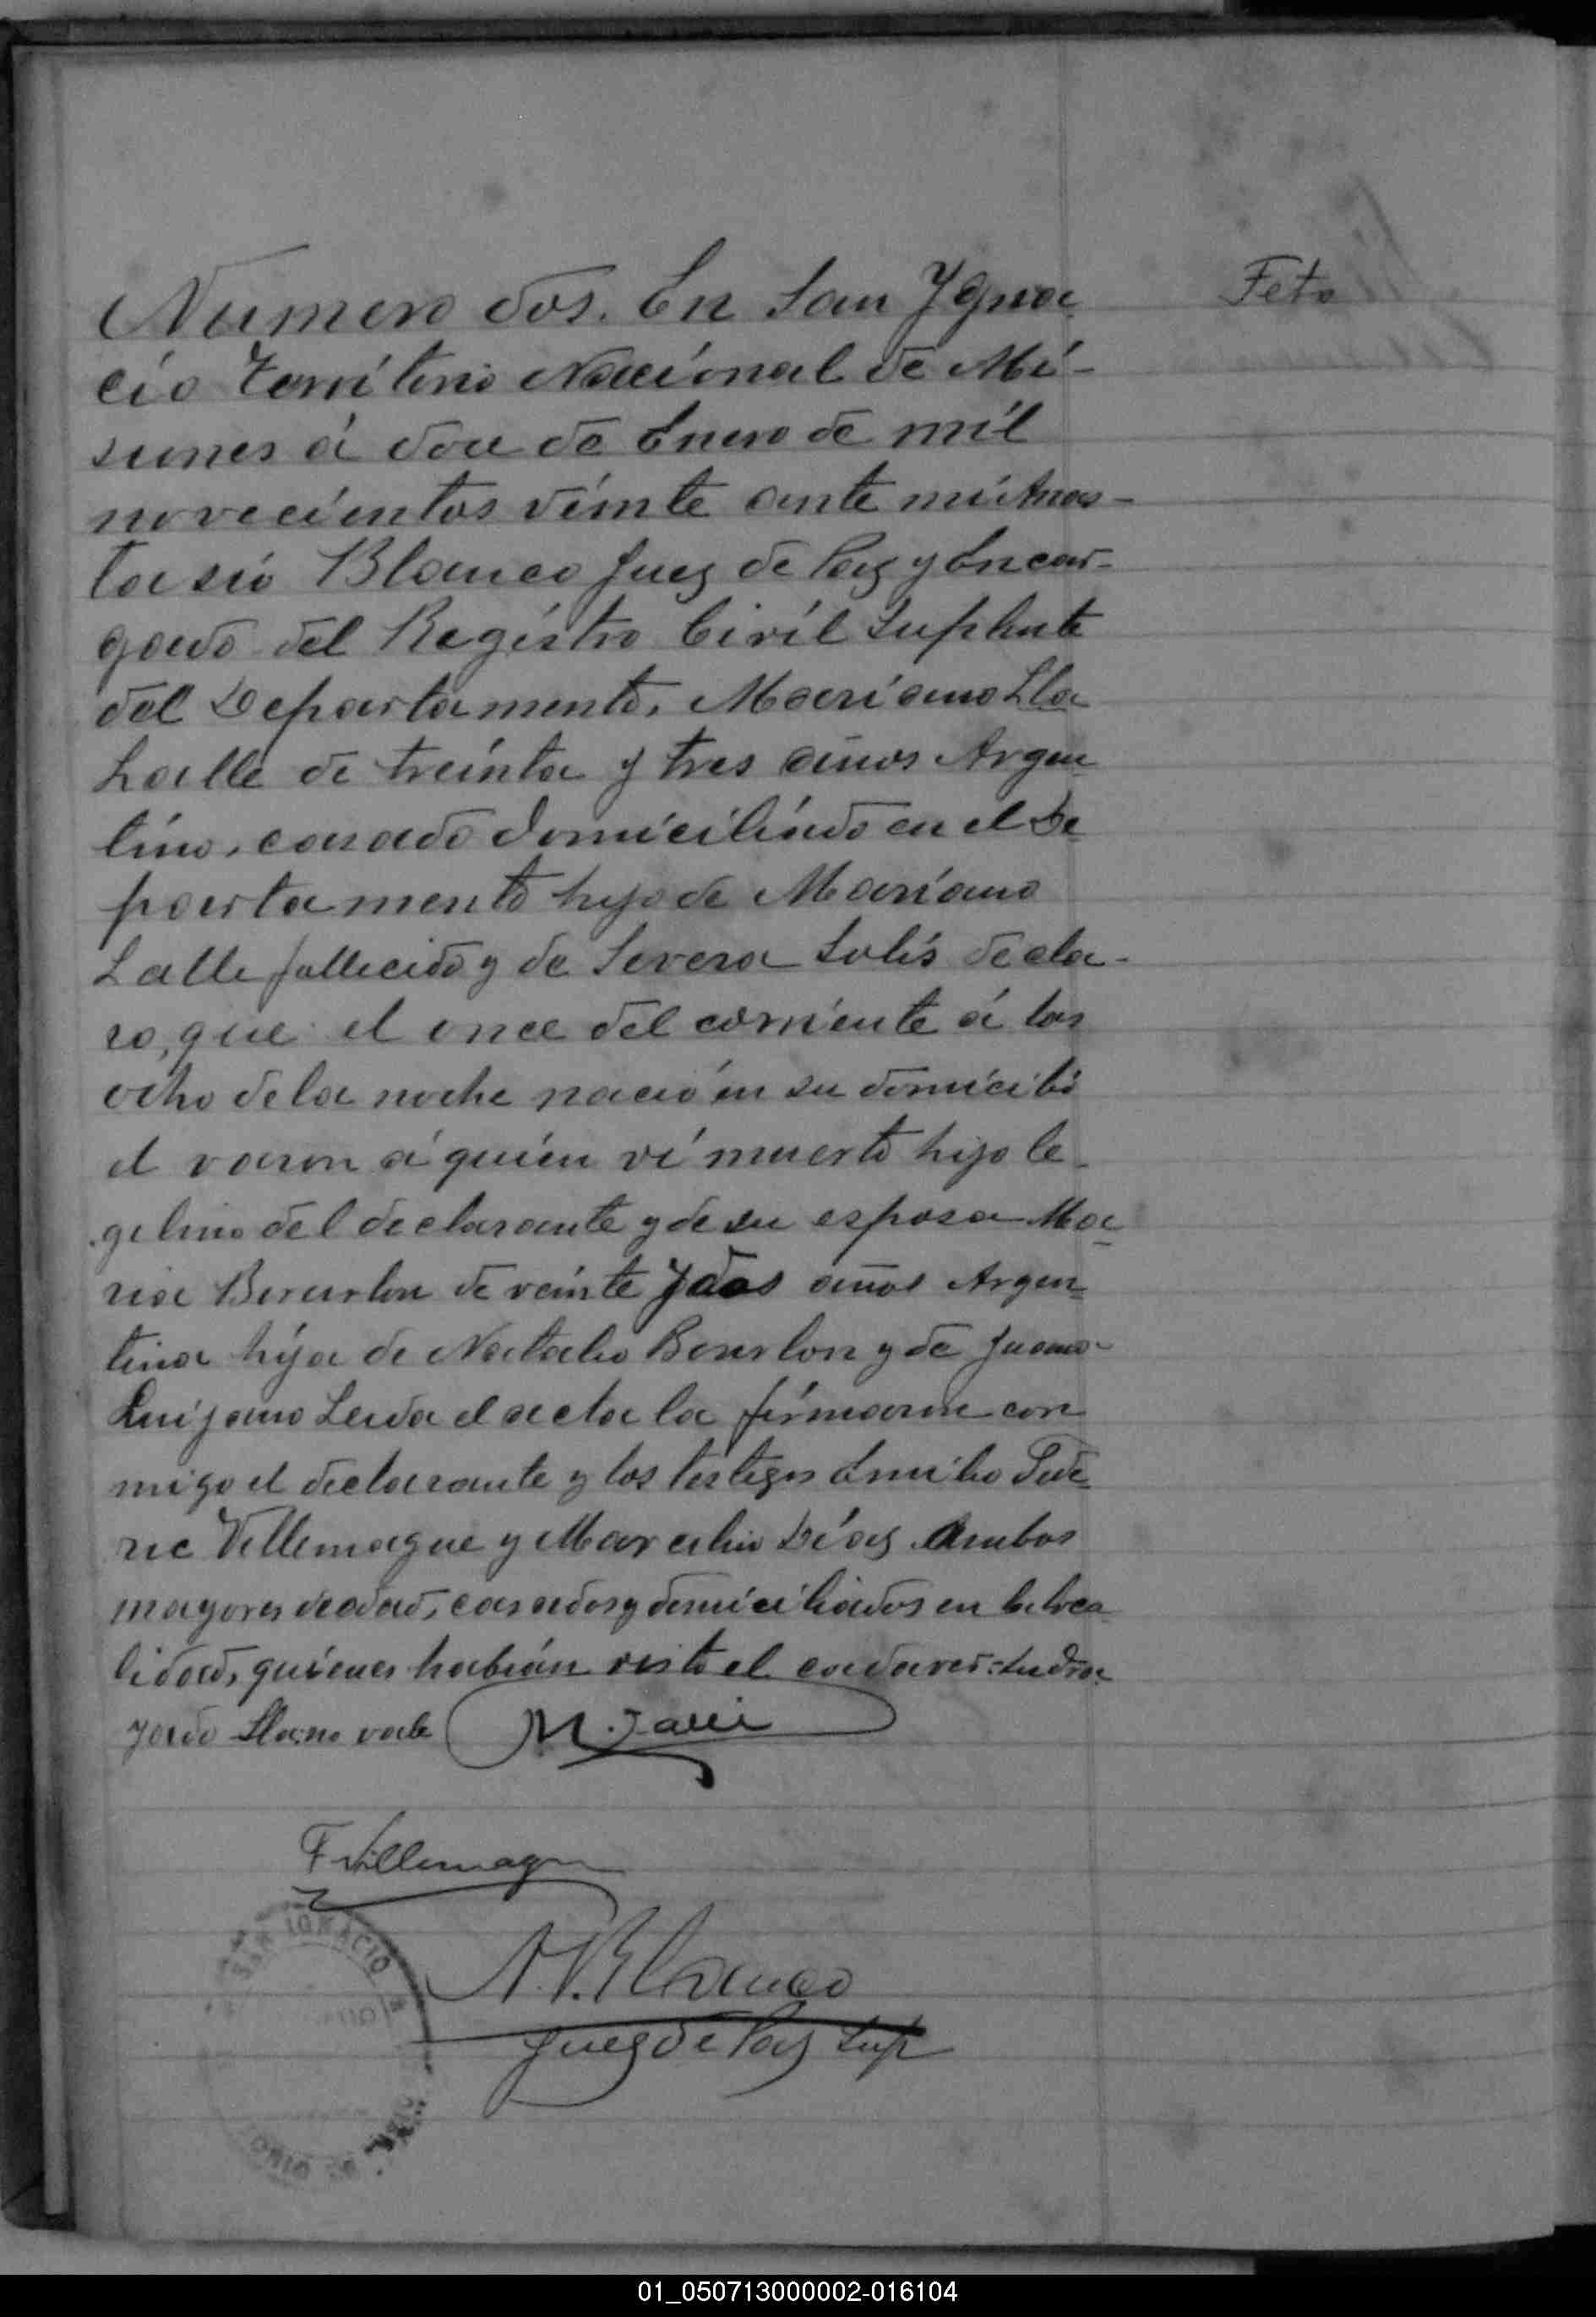 Feto
Numero dos. En San Ygna
cio Territorio Nacional de Mi-
siones á doce de Enero de mil
novecientos veinte ante mi Anas-
tasio Blanco Juez de Paz y Encar-
gado del Registro Civil Suplente
del Departamento, Mariano Lla
Lalle de treinta y tres años Argen
tino, casado domiciliado en el De
partamento hijo de Mariano
Lalle fallecido y de Severa Solis decla-
ro, que el once del corriente á las
ocho de la noche nació en su domicilio
el varon á quien ví muerto hijo le-
gitimo del declarante y de su esposa Ma
ria de veinte y dos años Argen
tina hija de Natalio Bourlon y de Juana
Quijano Leida el acta la firmaron con
migo el declarante y los testigos Emilio Fede
ric Villemagne y Marcelino Diaz ambos
mayores de edad, casados y domiciliados en la loca
lidad, quienes habian visto el cadaver: Sudra
yado Lla: no vale M. Lalle
F Villemagne
A. Blanco
Juez de Paz Sup
SAN IGNACIO
01_050713000002-016104